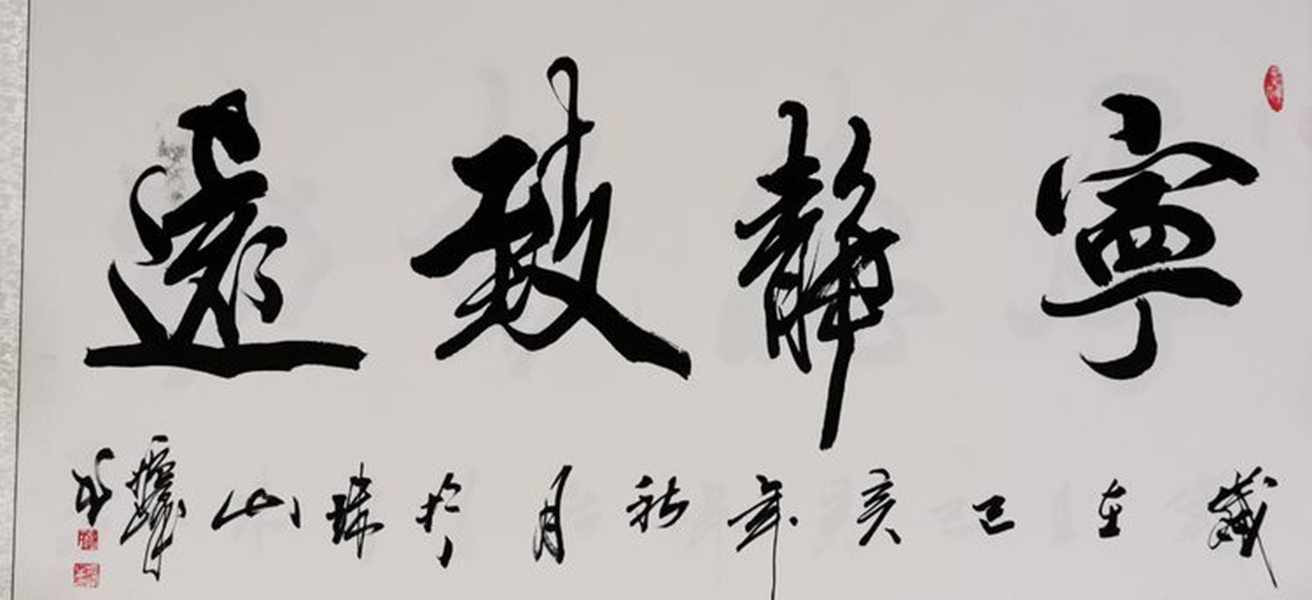 寧靜致遠
歲在己亥年秋月於瑞山